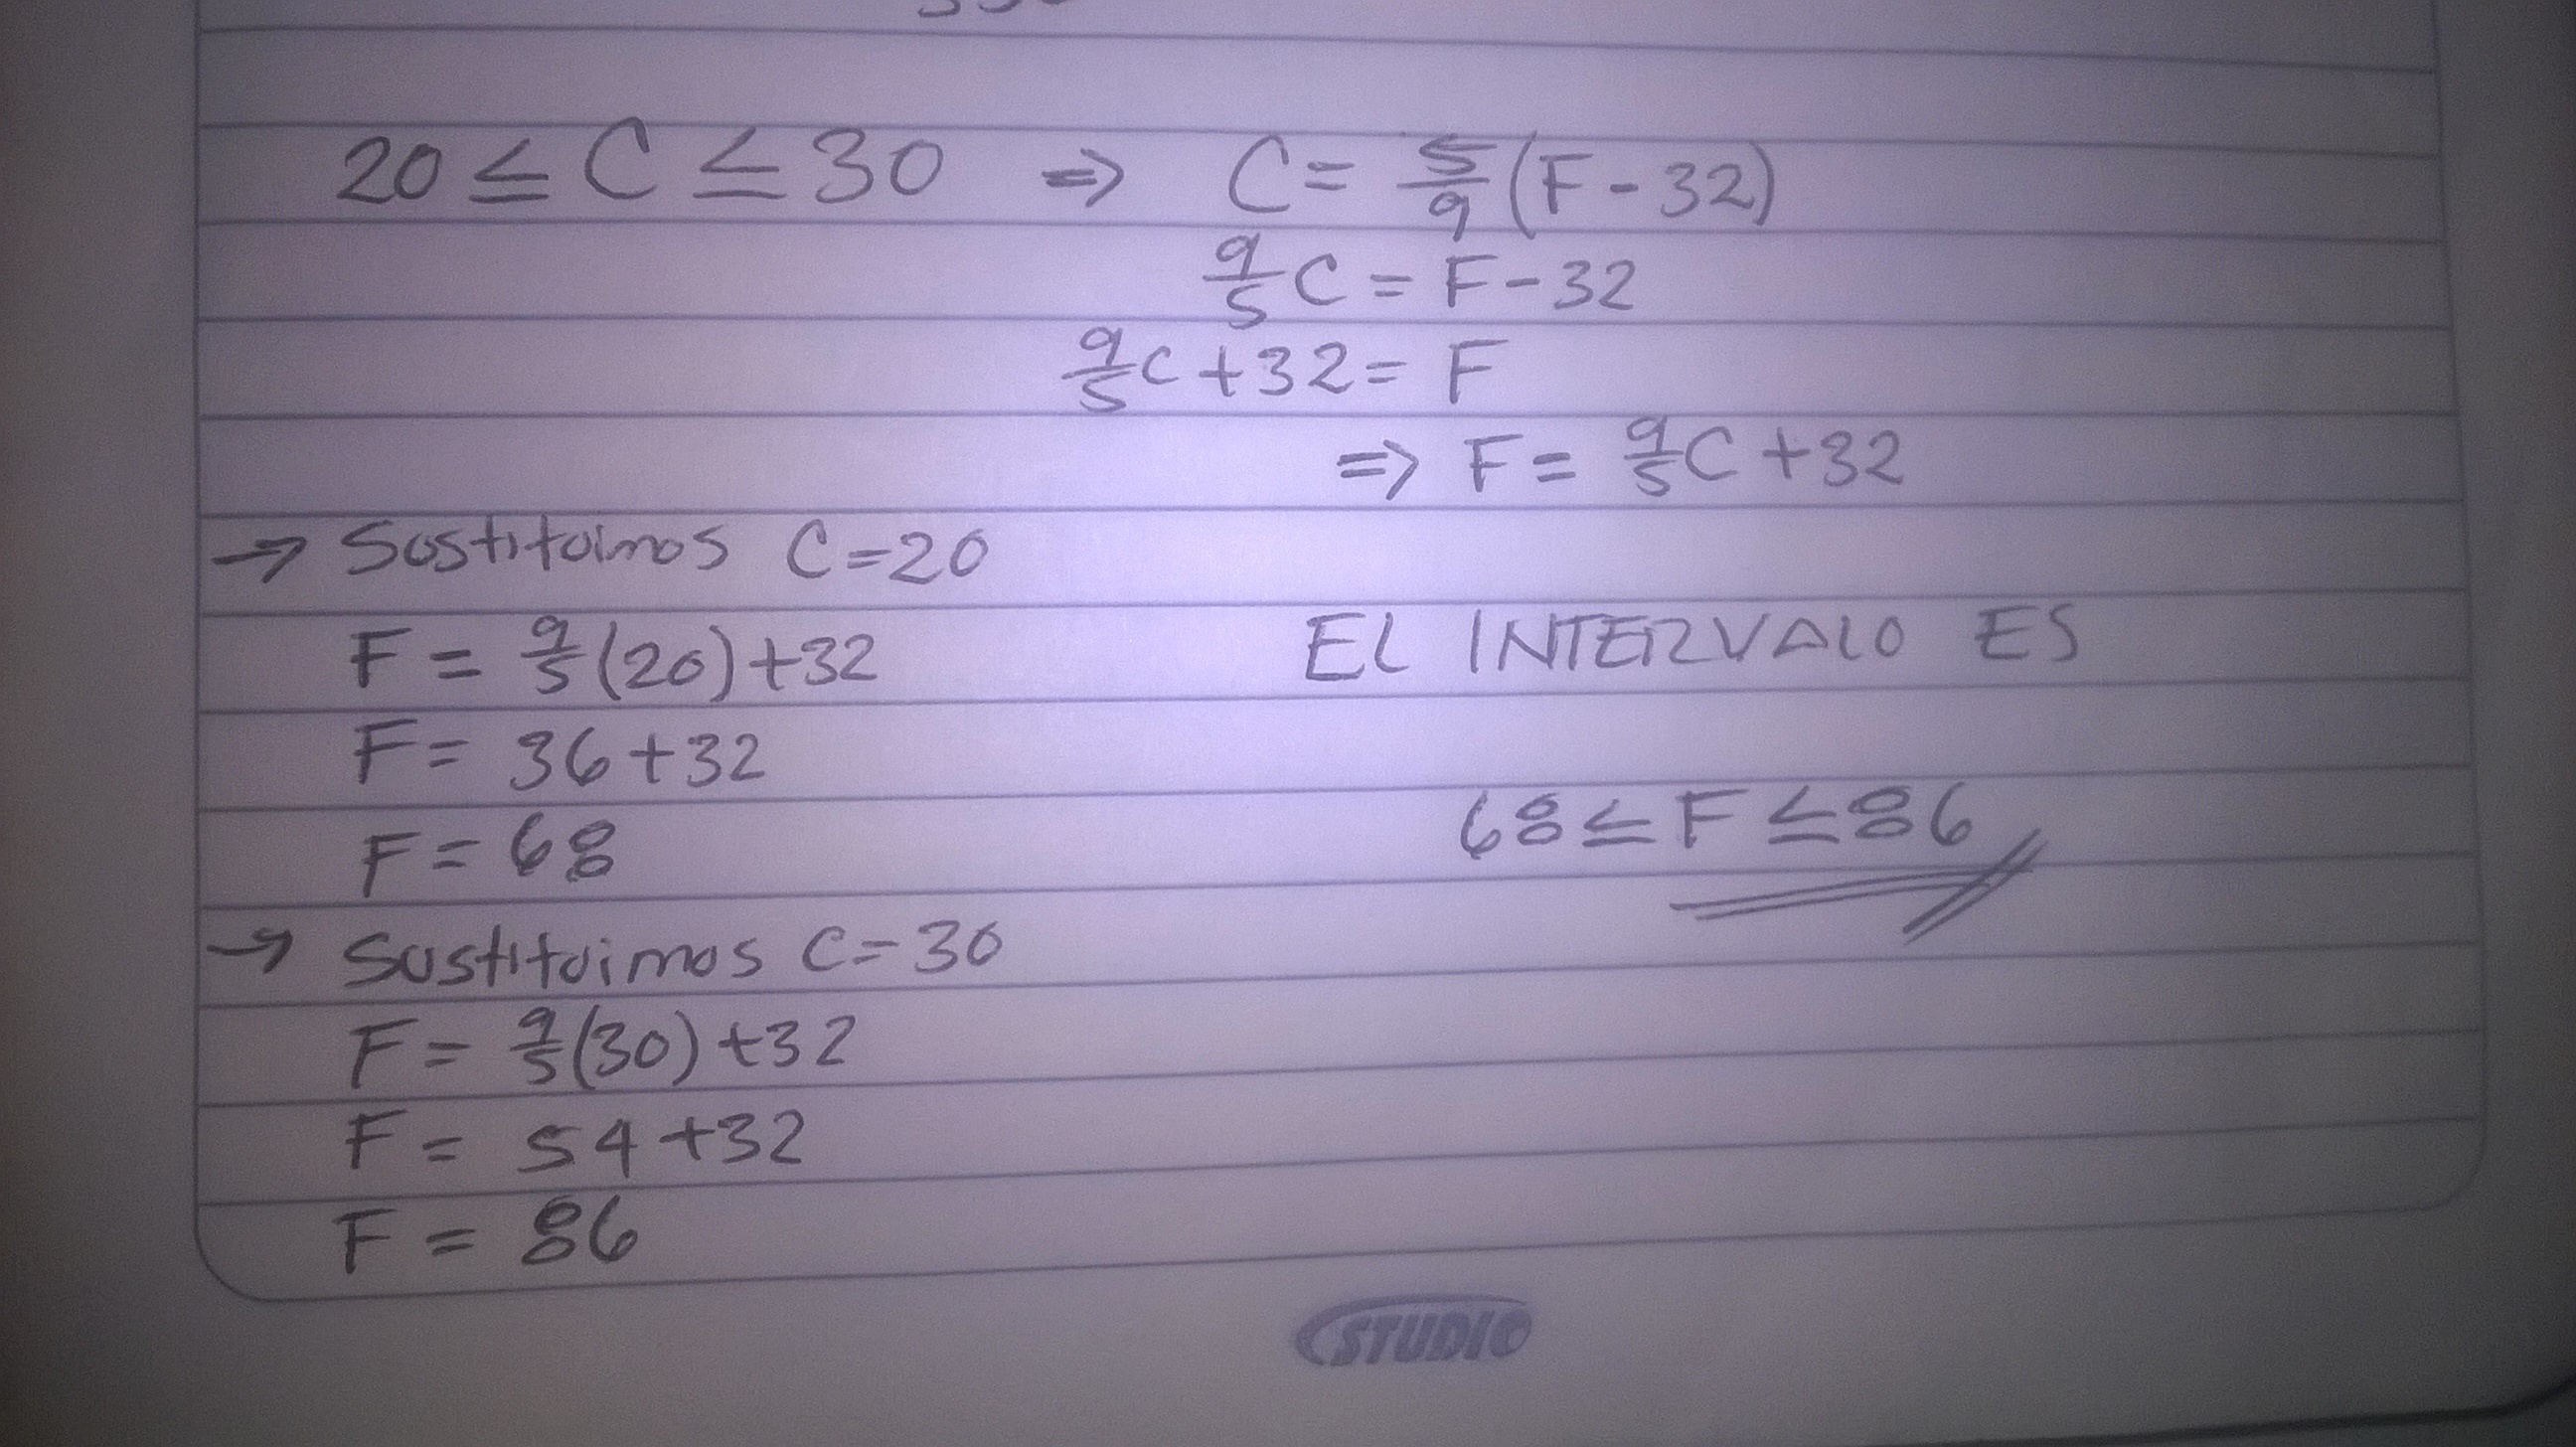 20 ≤ C ≤ 30 => C = 5/9 (F - 32)
9/5 C = F - 32
9/5 C + 32 = F
=> F = 9/5 C + 32
→ Sustituimos C = 20
F = 9/5 (20) + 32
F = 36 + 32
F = 68
→ Sustituimos C = 30
F = 9/5 (30) + 32
F = 54 + 32
F = 86
EL INTERVALO ES
68 ≤ F ≤ 86
STUDIO